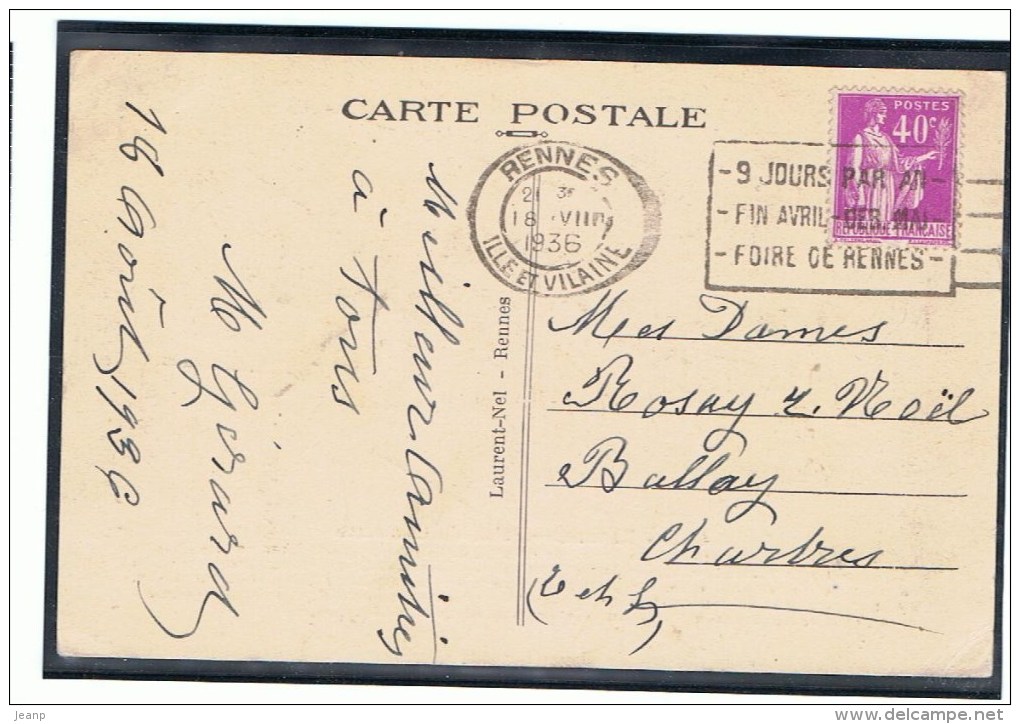 CARTE POSTALE
POSTES
40c
RÉPUBLIQUE FRANÇAISE
RENNES
18 VIII
1936
ILLE ET VILAINE
- 9 JOURS PAR AN -
- FIN AVRIL-DEB. MAI -
- FOIRE DE RENNES -
18 Août 1936
M Gérard
Meilleur Amitiés
à Tous
Laurent-Nel - Rennes
Mes Dames
Rosay r. Noël
Ballay
Chartres
(E et L)
jeanp
©delcampe.net